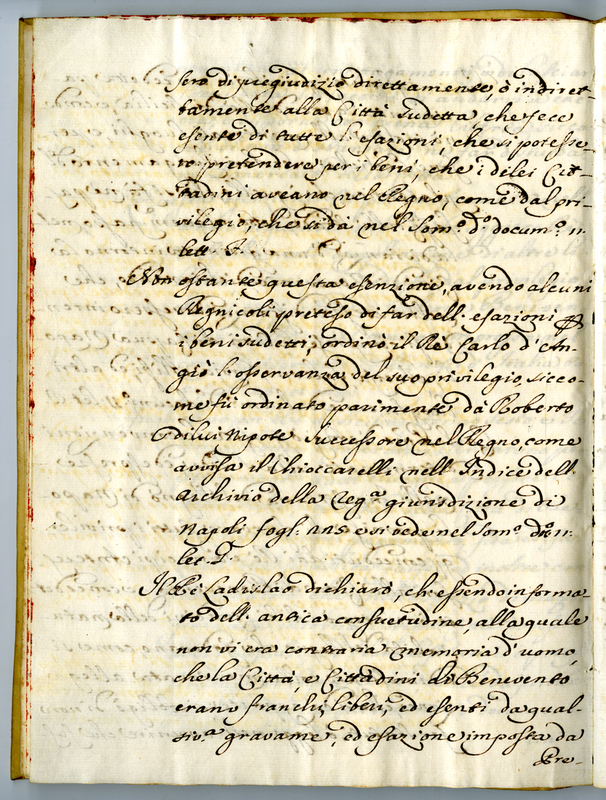 sero di pregiudizio direttamente, ò indiret-
tamente alla Città sudetta, che fece
esente di tutte l'esazioni, che si potesse-
ro pretendere per i beni, che i di lei Cit-
tadini aveano nel Regno, come dal pri-
vilegio, che si dà nel Som.º d.º docum.º n.
lett.
Non ostante questa esenzione, avendo alcuni
Regnicoli preteso di far dell'esazioni
i beni sudetti, ordinò il Rè Carlo d'An-
giò l'osservanza del suo privilegio, sicco-
me fù ordinato parimente da Roberto
di lui Nipote successore nel Regno, come
avvisa il Chioccarelli nell'Indice dell'
Archivio della reg.ª giurisdizione di
Napoli fogl. e si vede nel Som.º d.º n.
let.
Il Rè Ladislao dichiarò, ch'essendo informa-
to dell'antica consuetudine, alla quale
non vi era contraria memoria d'uomo,
che la Città, e Cittadini di Benevento
erano franchi, liberi, ed esenti da qual-
siv.ª gravame, ed esazione imposta da
Pre-